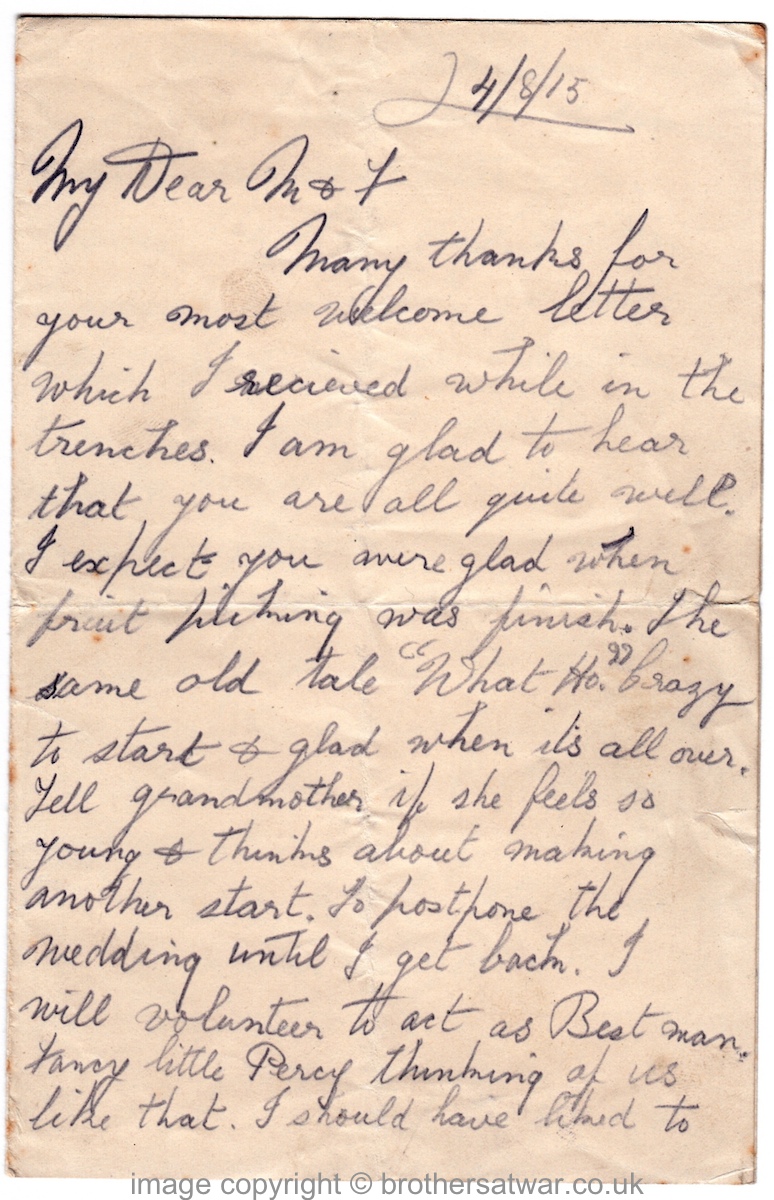 4/8/15
My Dear M & F
Many thanks for
your most welcome letter
which I recieved while in the
trenches. I am glad to hear
that you are all quite well.
I expect you were glad when
fruit picking was finish. The
same old tale "What Ho." Crazy
to start & glad when it's all over.
Tell grandmother if she feels so
young & thinks about making
another start. To postpone the
wedding until I get back. I
will volunteer to act as Best man.
Fancy little Percy thinking of us
like that. I should have liked to
image copyright © brothersatwar.co.uk